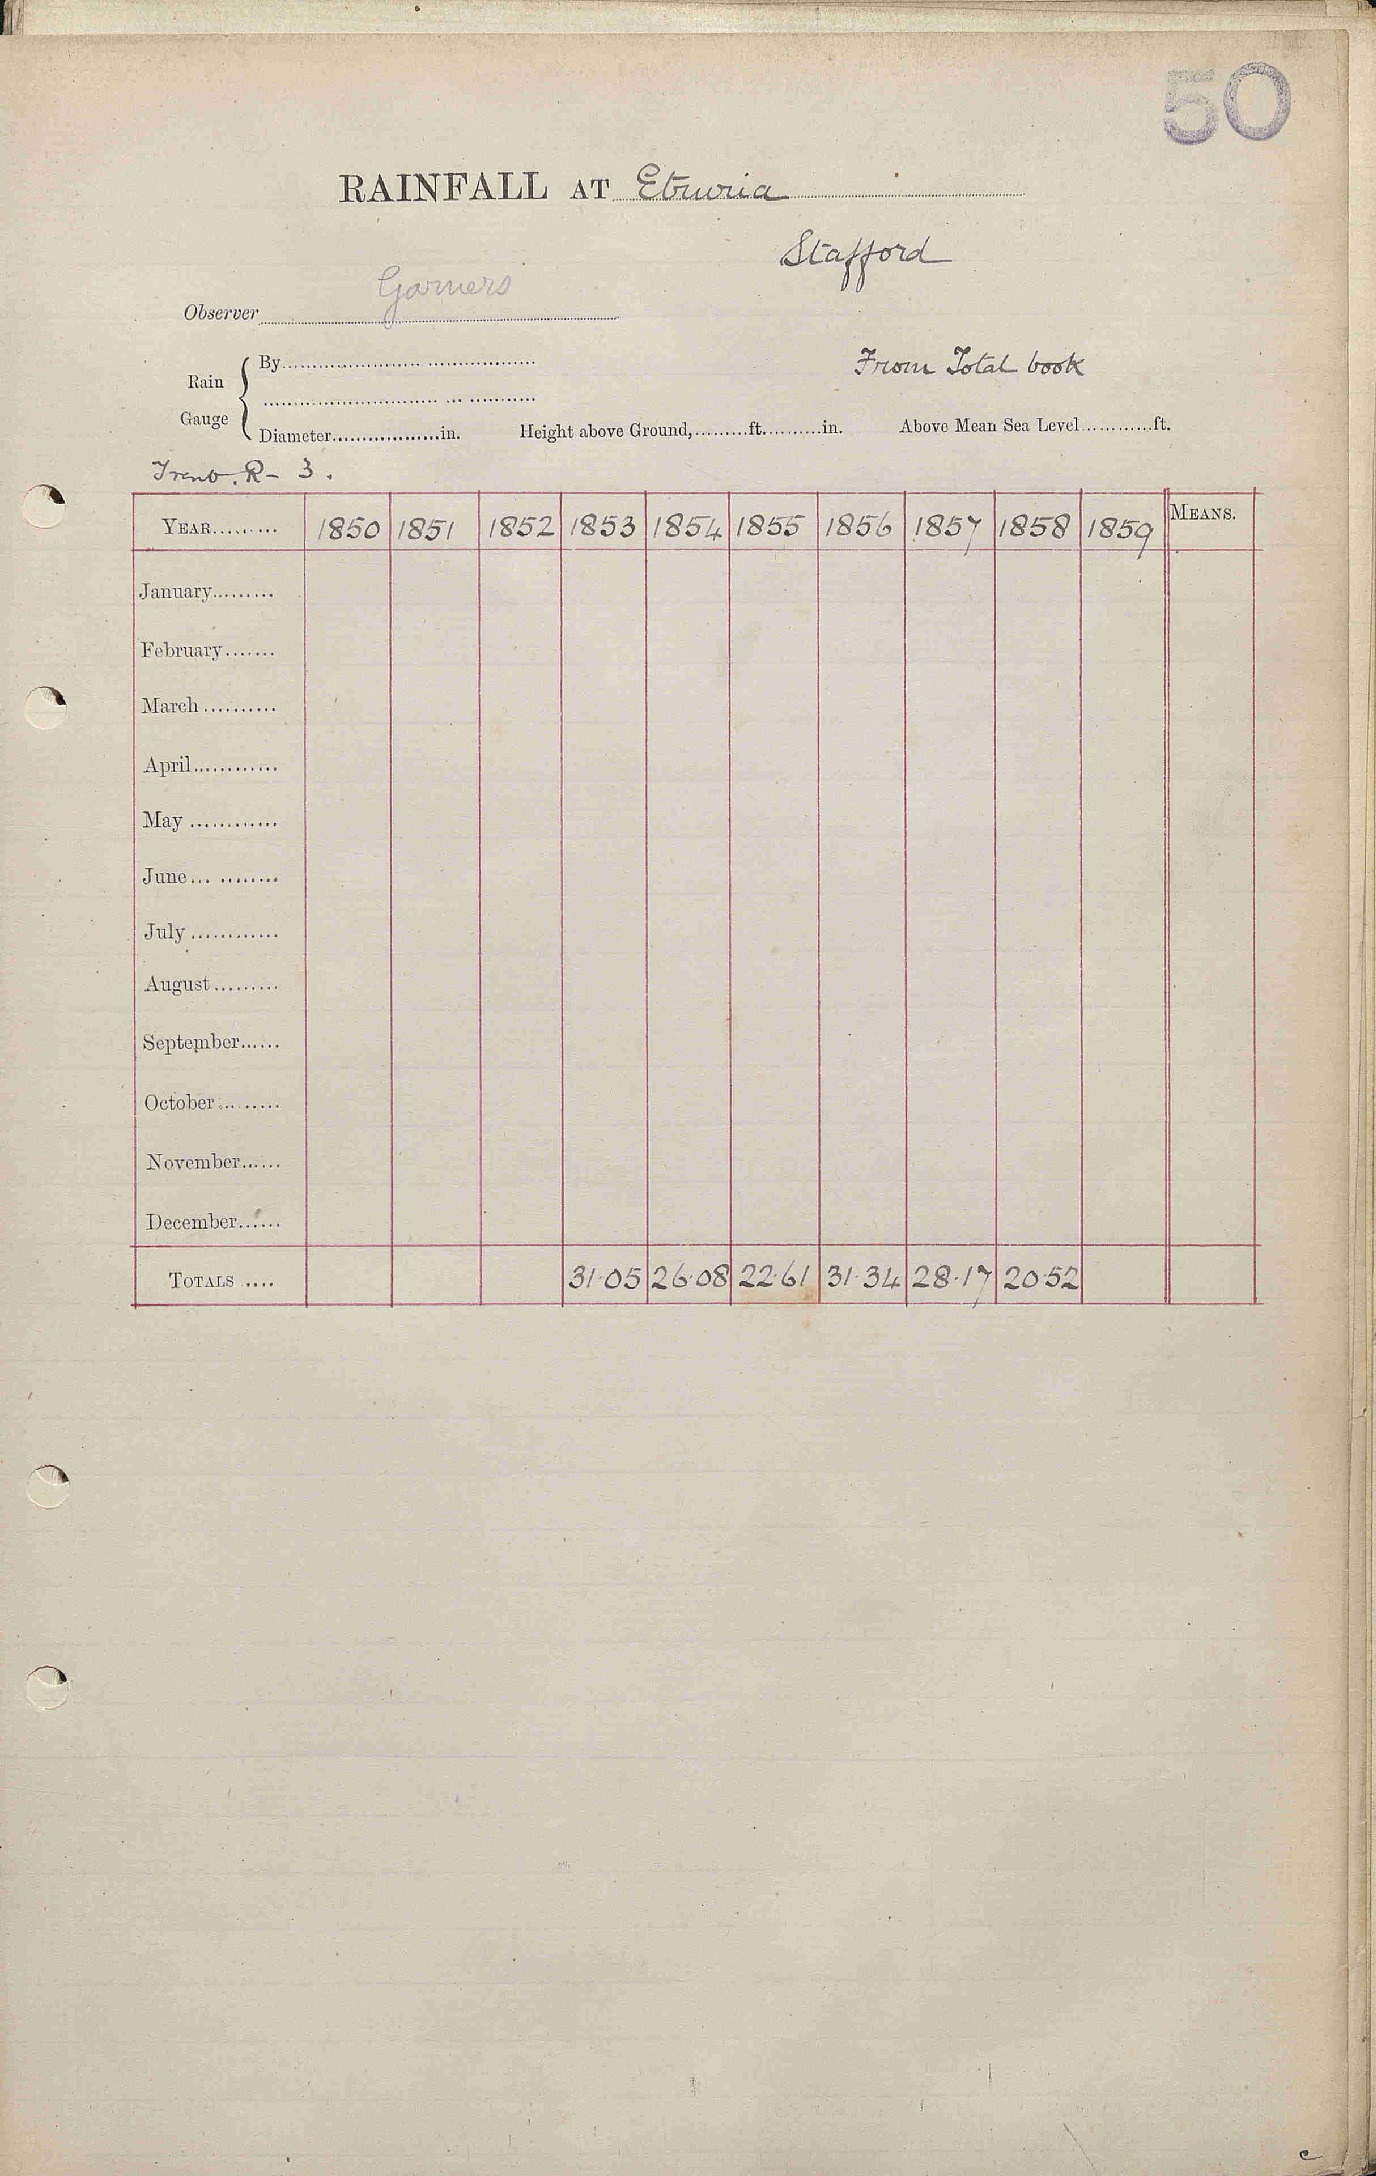 50
RAINFALL AT Etruria
Stafford
Garners
Observer
By
From Total book
Rain
Gauge
Diameter in. Height above Ground, ft. in. Above Mean Sea Level ft.
Trent. R- 3.
YEAR 1850 1851 1852 1853 1854 1855 1856 1857 1858 1859 MEANS.
January
February
March
April
May
June
July
August
September
October
November
December
TOTALS 31.05 26.08 22.61 31.34 28.17 20.52